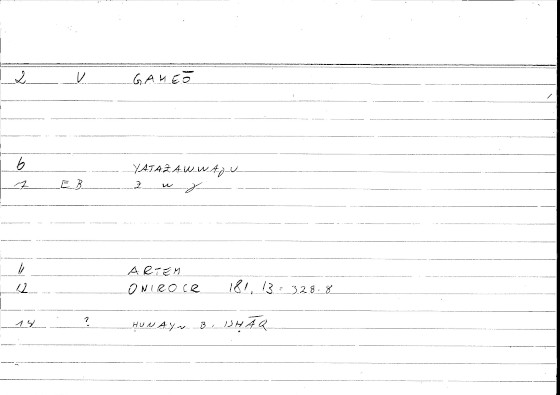 2 V GAMEŌ
6 YATAZAWWAǧU
7 EB z w ǧ
11 ARTEM
12 ONIROCR 181, 13 = 328.8
14 ? ḤUNAYN B. ISḤĀQ